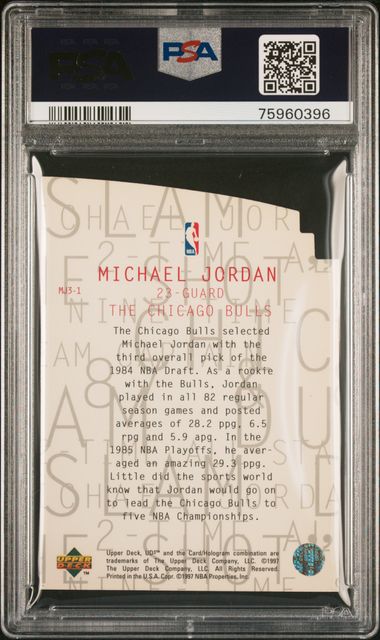 PSA
75960396
NBA
MICHAEL JORDAN
MJ3-1
23-GUARD
THE CHICAGO BULLS
The Chicago Bulls selected
Michael Jordan with the
third overall pick of the
1984 NBA Draft. As a rookie
with the Bulls, Jordan
played in all 82 regular
season games and posted
averages of 28.2 ppg, 6.5
rpg and 5.9 apg. In the
1985 NBA Playoffs, he aver-
aged an amazing 29.3 ppg.
Little did the sports world
know that Jordan would go on
to lead the Chicago Bulls to
five NBA Championships.
UPPER
DECK
Upper Deck, UD3™ and the Card/Hologram combination are
trademarks of The Upper Deck Company, LLC. ©1997
The Upper Deck Company, LLC. All Rights Reserved.
Printed in the U.S.A. Copr. ©1997 NBA Properties, Inc.